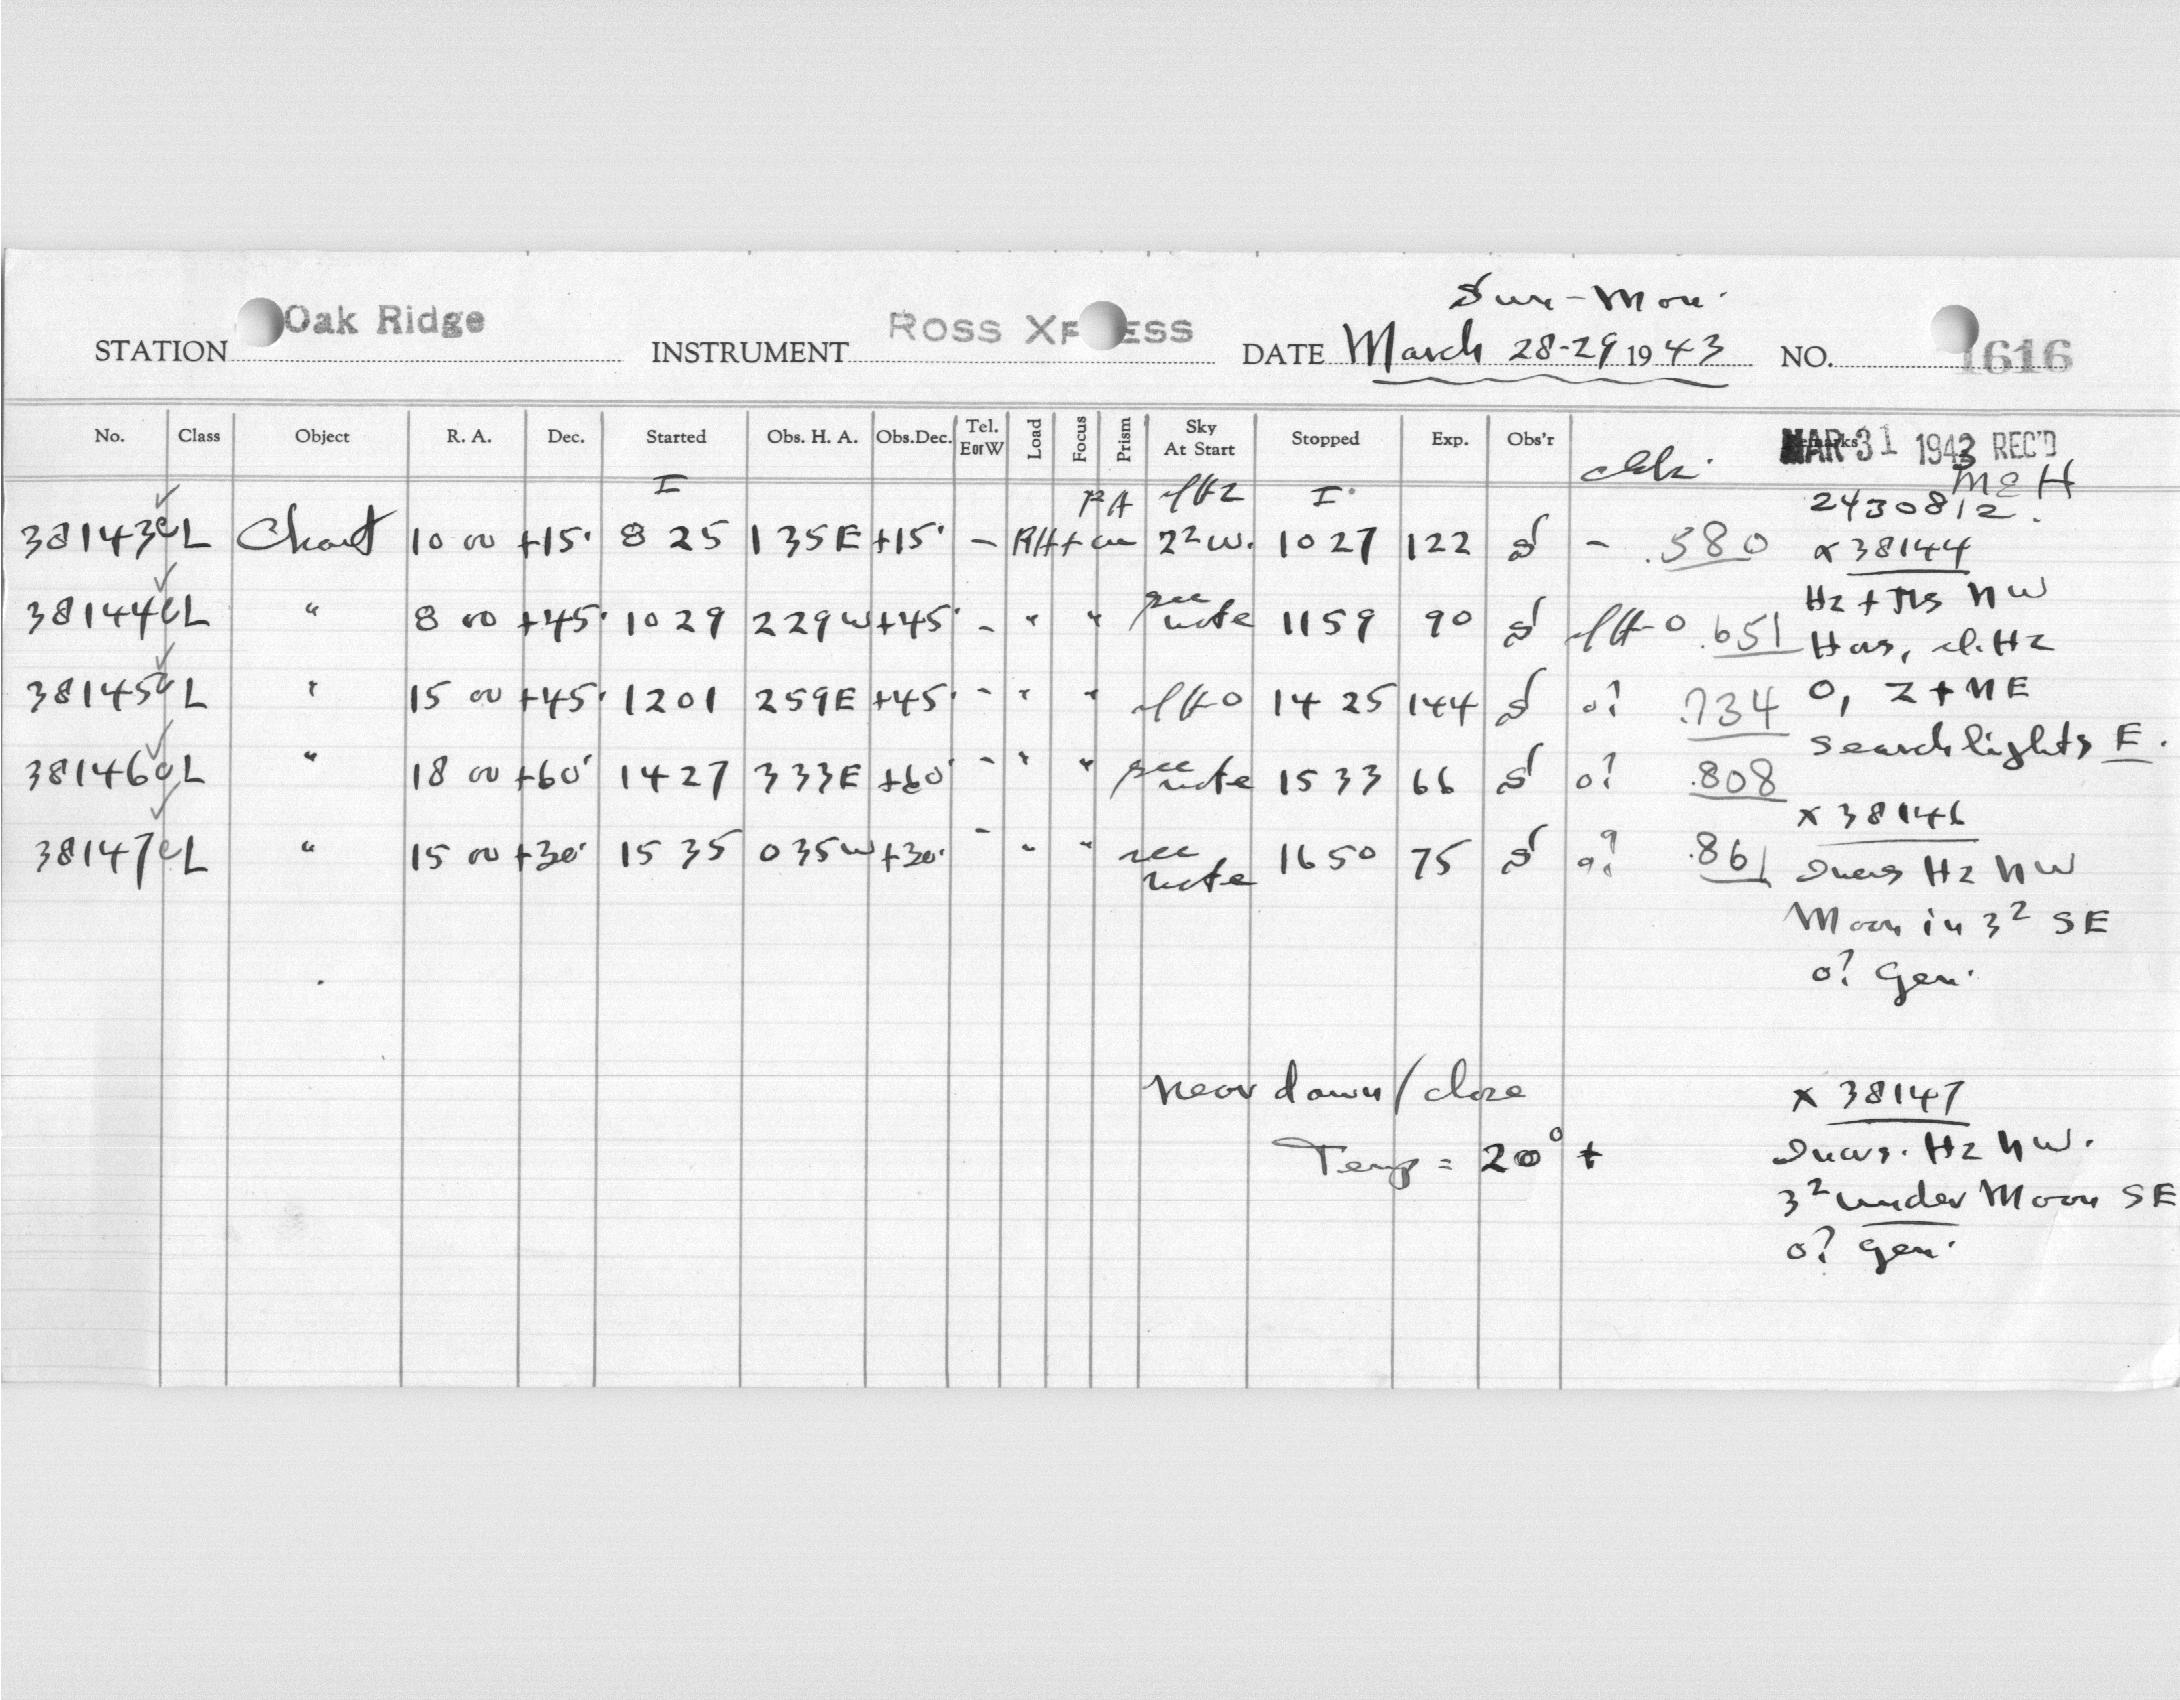 Sun-Mon.
STATION Oak Ridge INSTRUMENT ROSS XPRESS DATE March 28-29 1943 NO. 1616
No. Class Object R. A. Dec. Started Obs. H. A. Obs.Dec. Tel. E or W Load Focus Prism Sky At Start Stopped Exp. Obs'r Remarks
MAR 31 1943 REC'D
MEH
I I
2430812.
38143 L Chart 10 00 +15° 8 25 1 35 E +15° - 2² W. 10 27 122 S - .580 x 38144
38144 L " 8 00 +45° 10 29 2 29 W +45° - " " see note 11 59 90 S .651 Hz + NW
38145 L " 15 00 +45° 12 01 2 59 E +45° - " " 14 25 144 S 0? .734 0, Z + NE
searchlights E.
38146 L " 18 00 +60° 14 27 3 33 E +60° - " " see note 15 33 66 S 0? .808
x 38146
38147 L " 15 00 +30° 15 35 0 35 W +30° - " " see note 16 50 75 S 0? .861 Hz NW
Moon in 3² SE
0? Gen.
Near dawn/close x 38147
Temp = 20° + Hz NW.
3² under Moon SE
0? Gen.